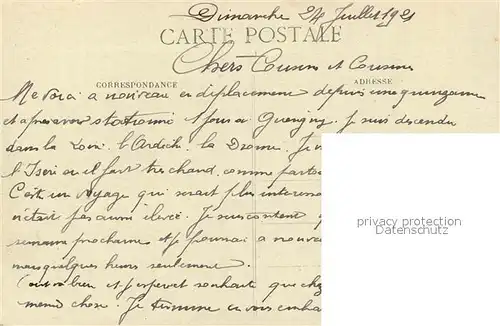 Dimanche 24 Juillet 1921
CARTE POSTALE
Chers Cousin et Cousine
CORRESPONDANCE
ADRESSE
Me voici à nouveau en déplacement depuis une quinzaine
et après avoir stationné à Guerigny. Je suis descendu
dans la Loire, l'Ardèche, la Drome. Je
l'Isère où il fait très chaud, comme partout
C'est un voyage qui serait plus
n'était pas aussi élevée. Je suis content
semaine prochaine et je pourrai à nouveau
mais quelques heures seulement.
Tout va bien et j'espère et souhaite que chez
même chose. Je termine en vous
privacy protection
Datenschutz